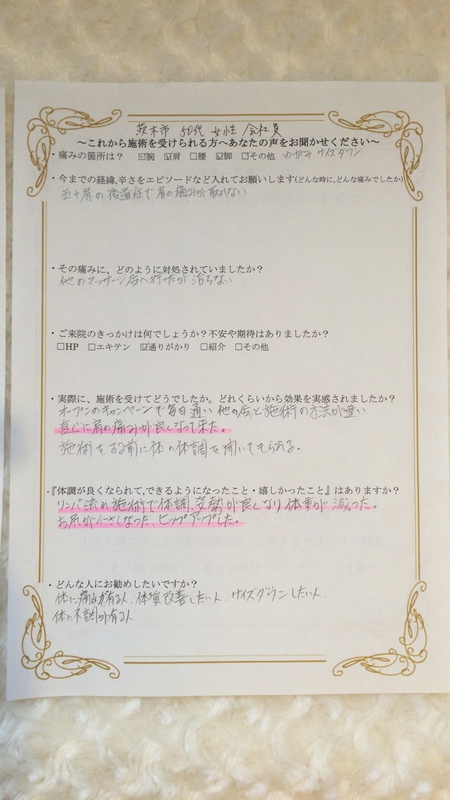 茨木市 50代 女性 会社員
～これから施術を受けられる方へあなたの声をお聞かせください～
・痛みの箇所は？ ☑腕 ☑肩 □腰 ☑脚 □その他 サイズダウン
・今までの経緯,辛さをエピソードなど入れてお願いします(どんな時に,どんな痛みでしたか)
五十肩の後遺症で肩の痛みが取れない
・その痛みに、どのように対処されていましたか？
他のマッサージ店へ行ったが治らない
・ご来院のきっかけは何でしょうか？不安や期待はありましたか？
□HP □エキテン ☑通りがかり □紹介 □その他
・実際に、施術を受けてどうでしたか。どれくらいから効果を実感されましたか？
オープンのキャンペーンで毎日通い他の店と施術の方法が違い
直ぐに肩の痛みが良くなって来た。
施術をする前に体の体調を聞いてもらえる。
・『体調が良くなられて,できるようになったこと・嬉しかったこと』はありますか？
リンパ流れ施術で体調、姿勢が良くなり体重が減った。
お尻が小さくなった ヒップアップした。
・どんな人にお勧めしたいですか？
体に痛みが有る人、体質改善したい人、サイズダウンしたい人、
体に不調が有る人